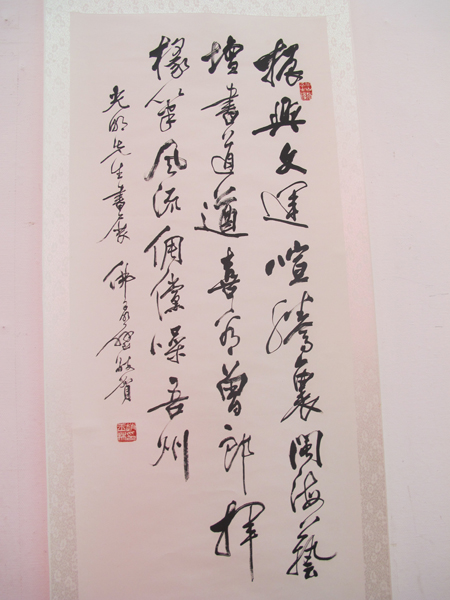 振興文運喧騰震閩海藝
壇書道遒喜看曾郎揮
椽筆風流倜儻噪吾州
光明先生書展